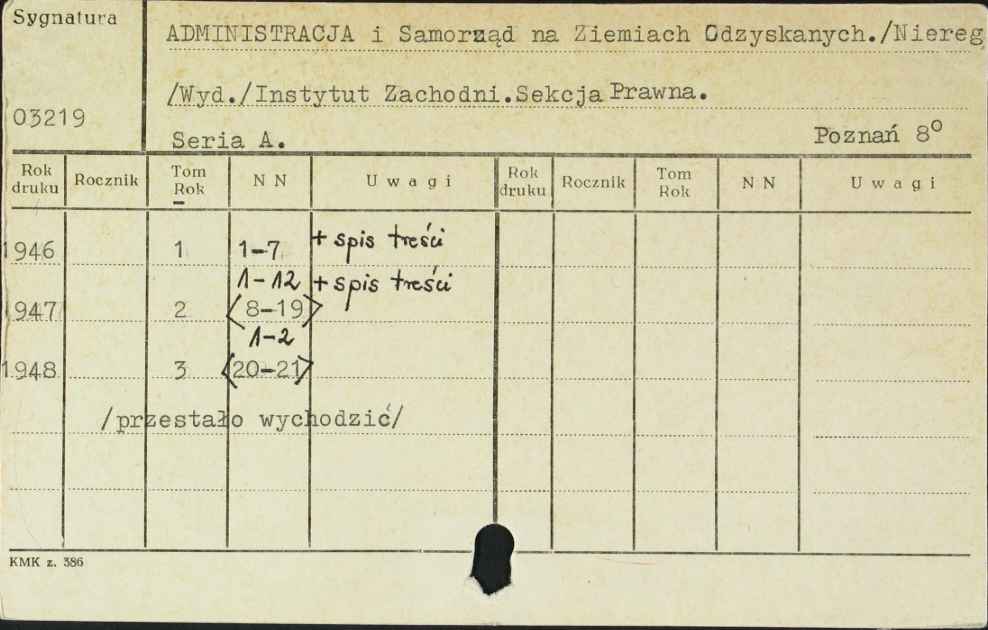 Sygnatura
ADMINISTRACJA i Samorząd na Ziemiach Odzyskanych./Niereg
/Wyd./Instytut Zachodni.Sekcja Prawna.
03219
Seria A. Poznań 8°
Rok druku Rocznik Tom Rok N N Uwagi Rok druku Rocznik Tom Rok N N Uwagi
1946 1 1-7 + spis treści
1-12 + spis treści
1947 2 <8-19>
1-2
1948 3 <20-21>
/przestało wychodzić/
KMK z. 386